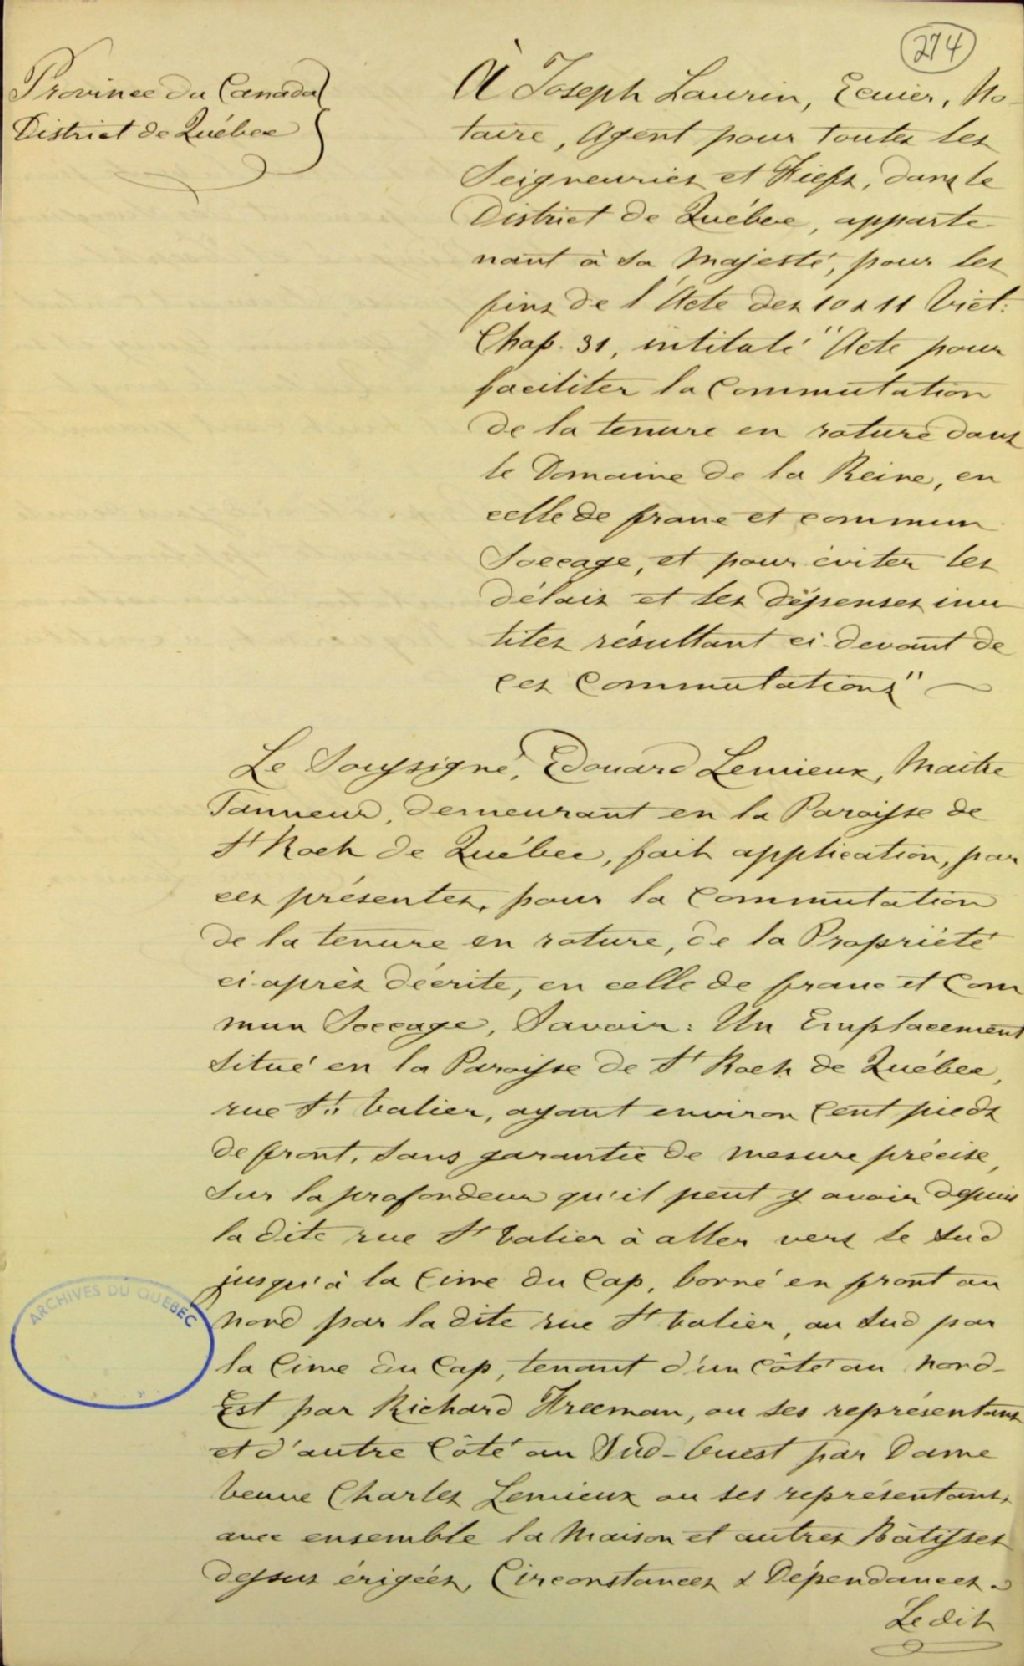 274
Province du Canada
District de Québec
À Joseph Laurin, Ecuier, No-
taire, Agent pour toutes les
Seigneuries et Fiefs, dans le
District de Québec, apparte
nant à Sa Majesté, pour les
fins de l'Acte des 10 & 11 Vict:
Chap. 31, intitulé "Acte pour
faciliter la Commutation
de la tenure en roture dans
le Domaine de la Reine, en
celle de franc et commun
Soccage, et pour éviter les
délais et les dépenses inu
tiles résultant ci-devant de
ces Commutations"
Le Soussigné, Edouard Lemieux, Maitre
Tanneur, demeurant en la Paroisse de
St Roch de Québec, fait application, par
ces présentes, pour la Commutation
de la tenure en roture, de la Propriété
ci-après décrite, en celle de franc et Com
mun Soccage, Savoir: Un Emplacement
Situé en la Paroisse de St Roch de Québec,
rue St Valier, ayant environ Cent pieds
de front, sans garantie de mesure précise,
Sur la profondeur qu'il peut y avoir depuis
la dite rue St Valier à aller vers le Sud
jusqu'à la Cime du Cap, borné en front au
Nord par la dite rue St Valier, au Sud par
la Cime du Cap, tenant d'un Côté au Nord-
Est par Richard Freeman, ou ses représentans
et d'autre Côté au Sud-Ouest par Dame
Veuve Charles Lemieux ou ses représentans,
avec ensemble la Maison et autres Bâtisses
dessus érigées, Circonstances & Dépendances.
Le dit
ARCHIVES DU QUEBEC